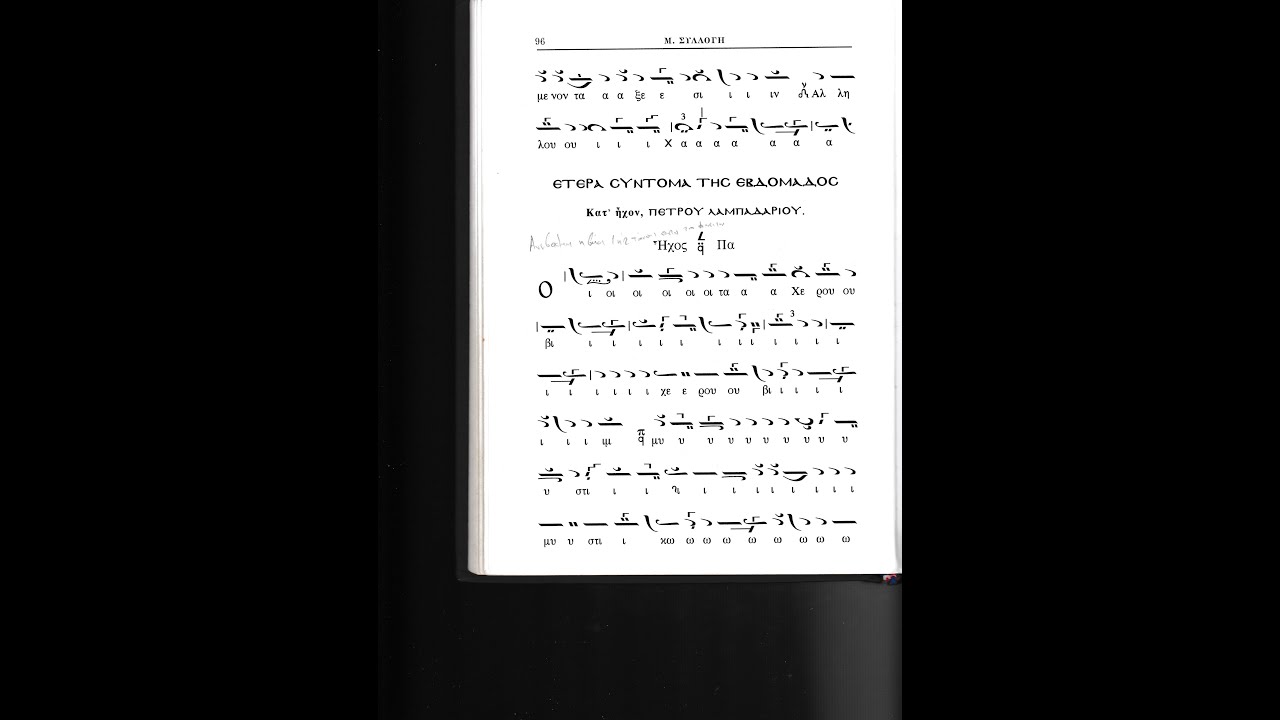 96 Μ. ΣΥΛΛΟΓΗ
με νον τα α α ξε ε σι ι ι ιν Αλ λη
λου ου ι ι ι Χ α α α α α α α
ΕΤΕΡΑ ΣΥΝΤΟΜΑ ΤΗΣ ΕΒΔΟΜΑΔΟΣ
Κατ' ἦχον, ΠΕΤΡΟΥ ΛΑΜΠΑΔΑΡΙΟΥ.
Ἦχος Πα
Ο ι οι οι οι οι οι τα α α Χε ρου ου
βι ι ι ι ι ι ι ι ι ι ι ι ι
ι ι ι ι ι ι χε ε ρου ου βι ι ι ι ι
ι ι ι ιμ μυ υ υ υ υ υ υ υ υ υ
υ στι ι ι ι ι ι ι ι ι ι ι
μυ υ στι ι κω ω ω ω ω ω ω ω ω